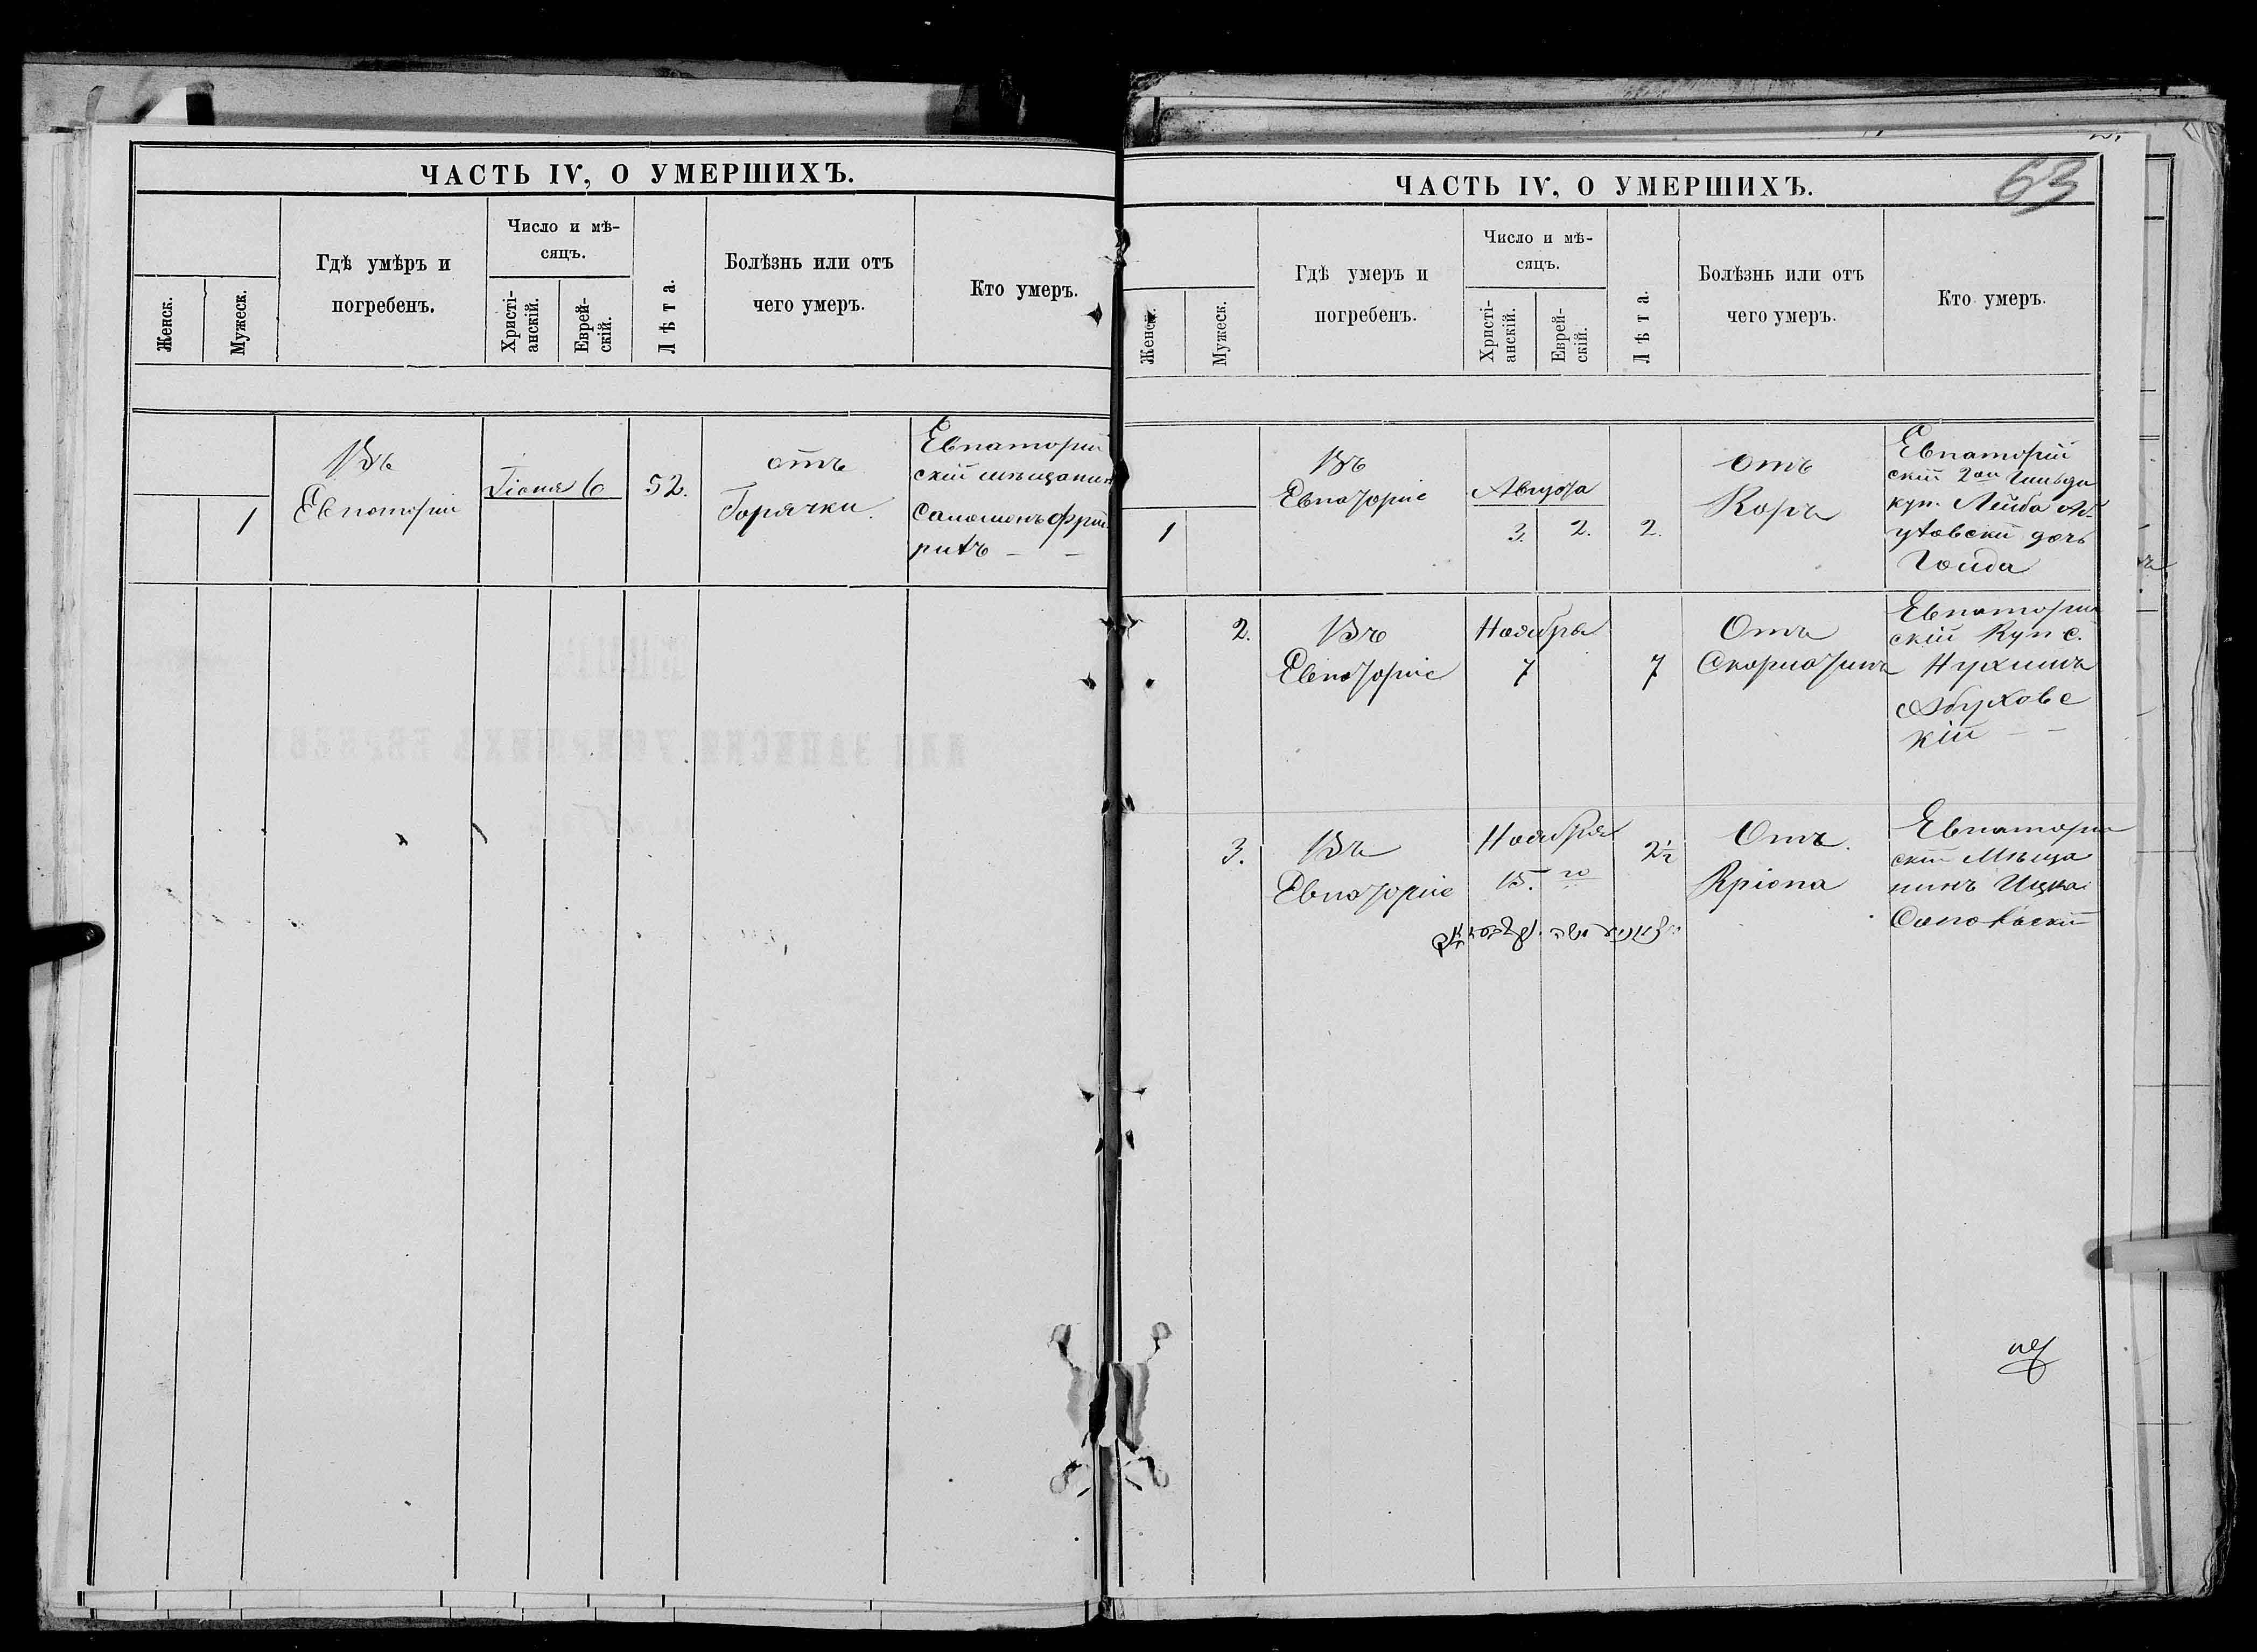 ЧАСТЬ IV, О УМЕРШИХЪ.
Женск.
Мужеск.
Гдѣ умѣръ и
погребенъ.
Число и мѣ-
сяцъ.
Христі-
анскій.
Еврей-
скій.
Лѣта.
Болѣзнь или отъ
чего умеръ.
Кто умеръ.
1
Въ
Евпаторіи
Іюня 6
52.
отъ
Горячки.
Евпаторій
скій мѣщанин
Саломонъ
ЧАСТЬ IV, О УМЕРШИХЪ.
63
Женск.
Мужеск.
Гдѣ умеръ и
погребенъ.
Число и мѣ-
сяцъ.
Христі-
анскій.
Еврей-
скій.
Лѣта.
Болѣзнь или отъ
чего умеръ.
Кто умеръ.
1
Въ
Евпаторіе
Августа
3.
2.
2.
отъ
Корь
Евпаторій
скій 2ой Гильди
куп. Лейба
дочь
Голда
2.
Въ
Евпаторіе
Ноября
7
7
Отъ
Евпаторій
скій Куп с.
Нухимъ
Абухов с
кій
3.
Въ
Евпаторіе
Ноября
15. го
2½
Отъ
Кріопа
Евпаторій
скій Мѣща
нинъ Ицка